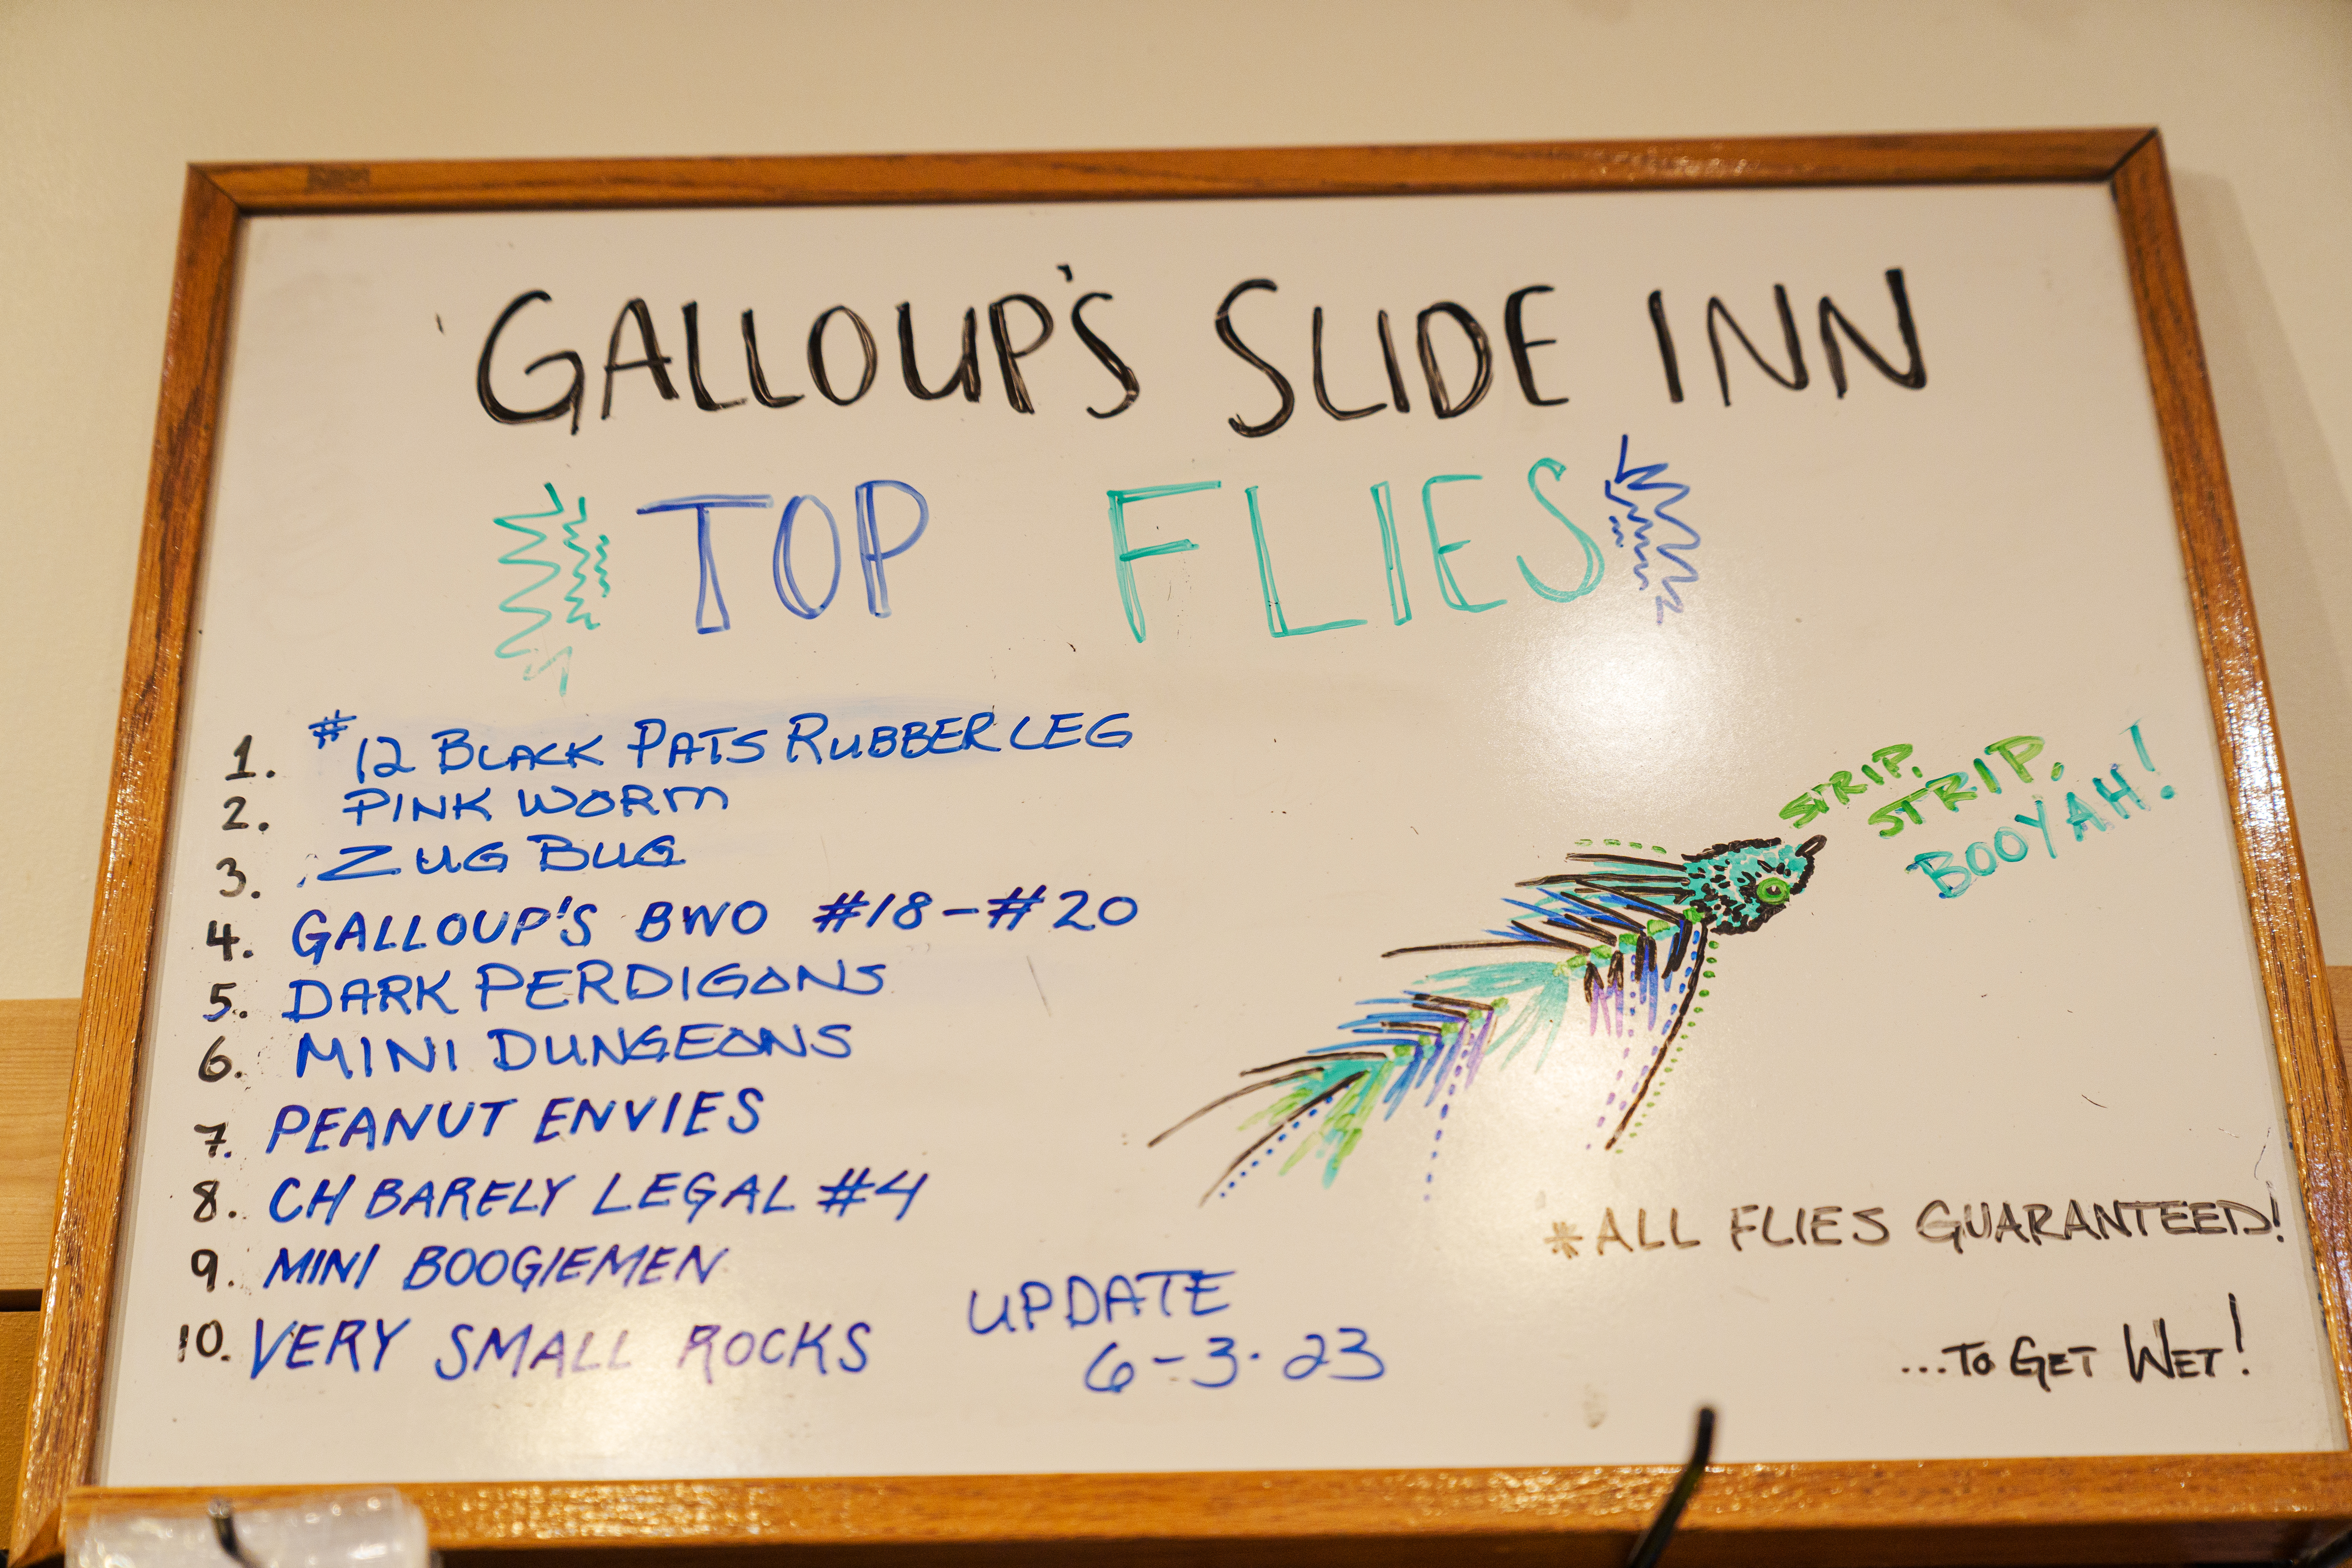 GALLOUP'S SLIDE INN
TOP FLIES
1. #12 BLACK PATS RUBBERLEG
2. PINK WORM
3. ZUG BUG
4. GALLOUP'S BWO #18-#20
5. DARK PERDIGONS
6. MINI DUNGEONS
7. PEANUT ENVIES
8. CH BARELY LEGAL #4
9. MINI BOOGIEMEN
10. VERY SMALL ROCKS
UPDATE
6-3-23
STRIP.
STRIP.
BOOYAH!
*ALL FLIES GUARANTEED!
...TO GET WET!